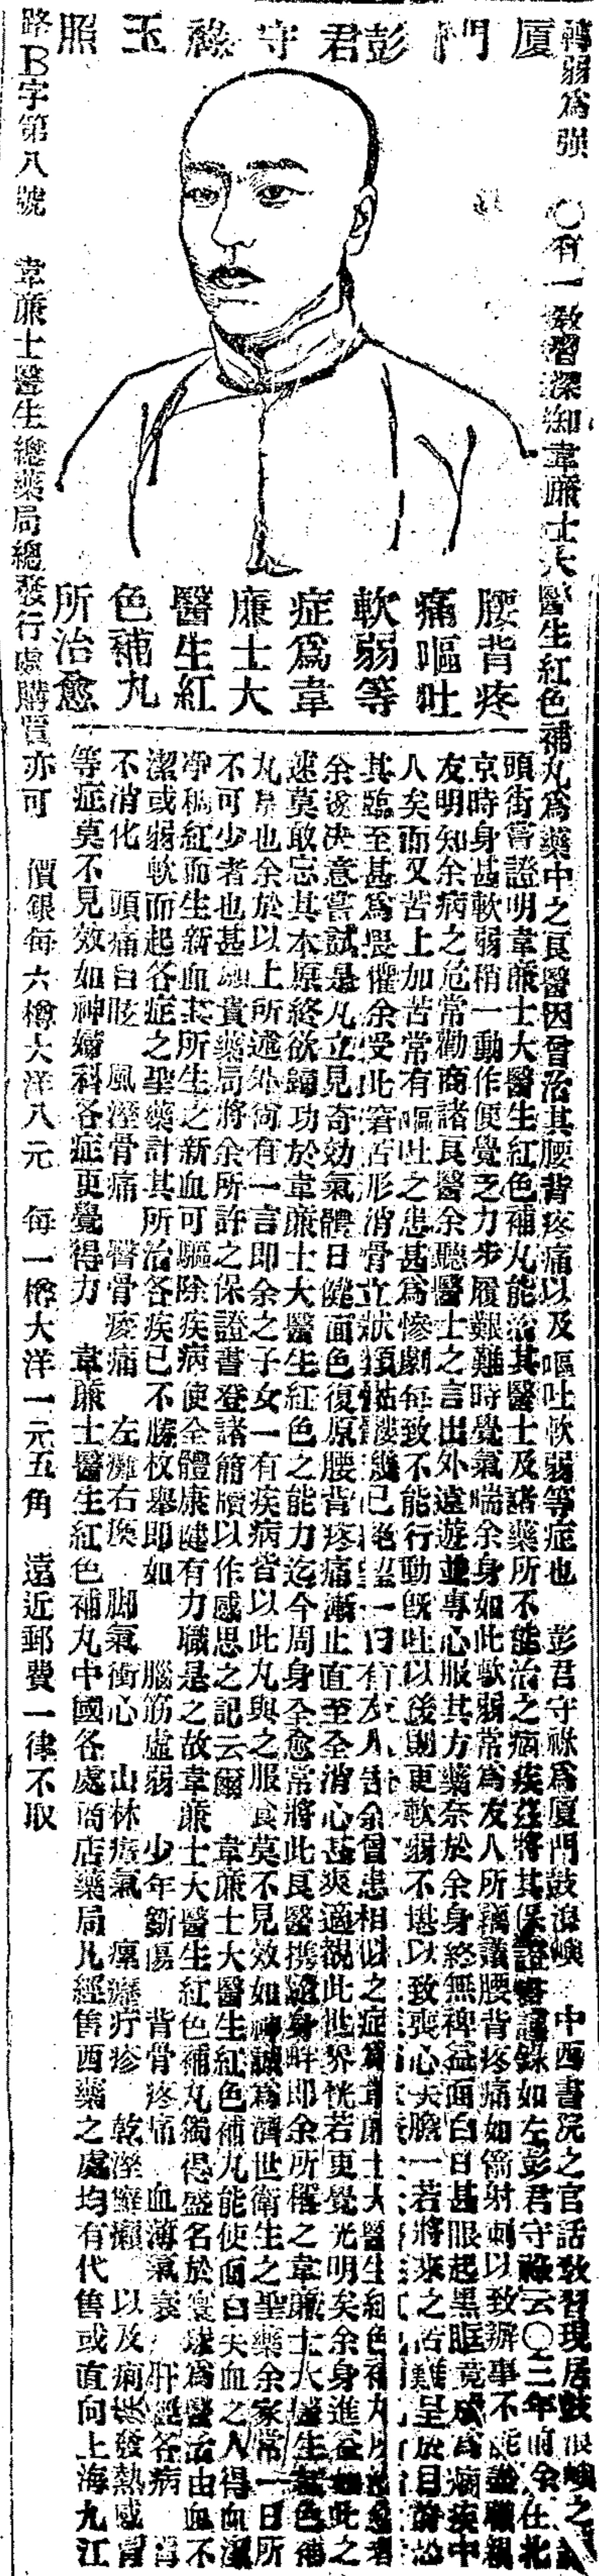 轉弱爲强　〇有一敎習深知韋廉士大醫生紅色補丸爲藥中之良醫因曾治其腰背疼痛以及嘔吐軟弱等症也　彭君守祿爲厦門鼓浪嶼　中西書院之官話敎習現居鼓浪嶼之
厦門彭君守祿玉照
腰背疼
痛嘔吐
軟弱等
症爲韋
廉士大
醫生紅
色補丸
所治愈
頭街嘗證明韋廉士大醫生紅色補丸能治其醫士及諸藥所不能治之病疾茲將其保證書記錄如左彭君守祿云〇三年前余在北
京時身甚軟弱稍一動作便覺乏力步履艱難時覺氣喘余身如此軟弱常爲友人所譏議腰背疼痛如箭射刺以致辦事不能盡職親
友明知余病之危常勸商諸良醫余聽醫士之言出外遠遊並專心服其方藥奈於余身終無裨益面白日甚眼起黑眶竟成爲癆疾中
人矣而又苦上加苦常有嘔吐之患甚爲慘劇每致不能行動旣吐以後則更軟弱不堪以致喪心失膽一若將來之苦難呈於目前恐
其臨至甚爲畏懼余受此窘苦形消骨立狀類骷髏幾已絕望一日有友人告余曾患相似之症爲韋廉士大醫生紅色補丸所治愈者
余遂决意嘗試是丸立見奇効氣體日健面色復原腰背疼痛漸止直至全消心甚爽適視此世界恍若更覺光明矣余身進益如此之
速莫敢忘其本原終欲歸功於韋廉士大醫生紅色之能力迄今周身全愈常將此良醫携隨身畔卽余所稱之韋廉士大醫生紅色補
丸是也余於以上所述外尙有一言卽余之子女一有疾病皆以此丸與之服食莫不見效如神誠爲濟世衛生之聖藥余家常一日所
不可少者也甚願貴藥局將余所許之保證書登諸簡牘以作感思之記云爾　韋廉士大醫生紅色補丸能使面白失血之人得血潔
淨稠紅而生新血其所生之新血可驅除疾病使全體康健有力職是之故韋廉士大醫生紅色補丸獨得盛名於寰球爲醫治由血不
潔或弱軟而起各症之聖藥計其所治各疾已不勝枚舉卽如　腦筋虛弱　少年斲傷　背骨疼痛　血薄氣衰　肝經各病　胃
不消化　頭痛目眩　風溼骨痛　臀骨痠痛　左癱右瘓　脚氣衝心　山林瘴氣　瘰癧疔疹　乾溼癬癩　以及痢疾發熱感冒
等症莫不見效如神婦科各症更覺得力　韋廉士醫生紅色補丸中國各處商店藥局凡經售西藥之處均有代售或直向上海九江
路B字第八號　韋廉士醫生總藥局總發行處購買亦可　價銀每六樽大洋八元　每一樽大洋一元五角　遠近郵費一律不取